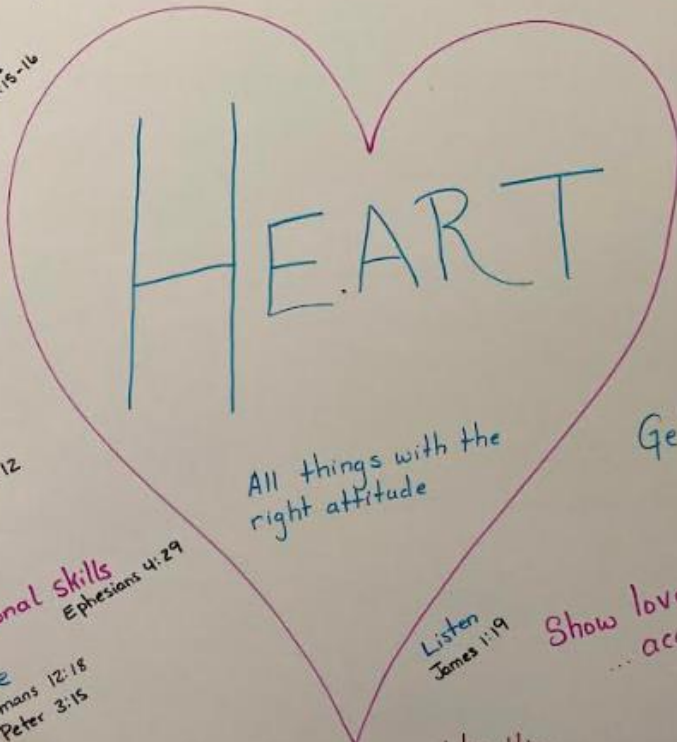 :15-16
HEART
All things with the
right attitude
12
onal skills
Ephesians 4:29
e
mans 12:18
Peter 3:15
Listen
James 1:19
Ge
Show lov
... acc